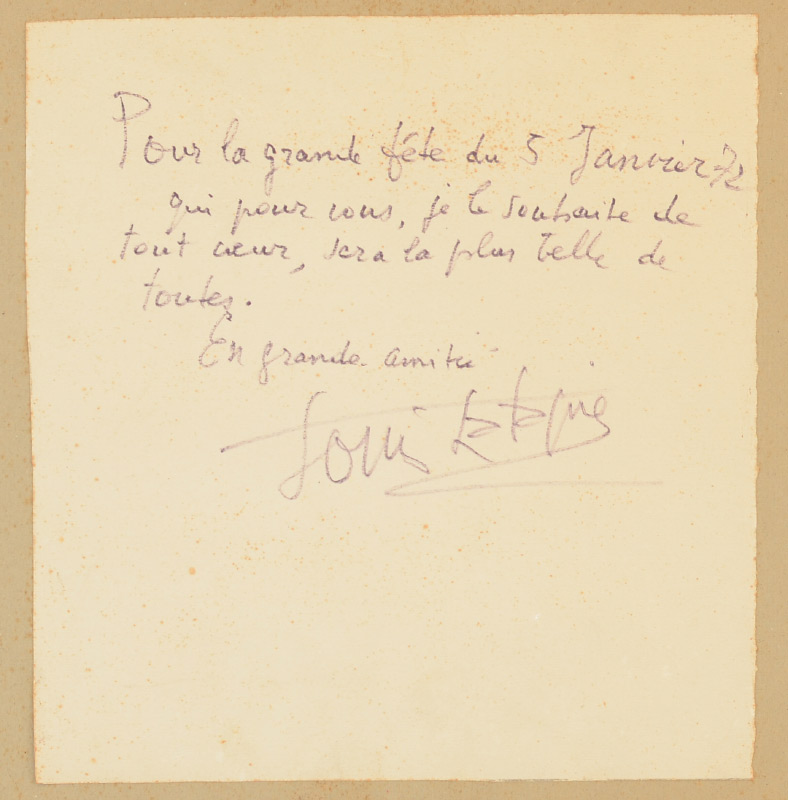 Pour la grande fête du 5 Janvier 72
qui pour vous, je le souhaite de
tout cœur, sera la plus belle de
toutes.
En grande amitié
Louis Latapie